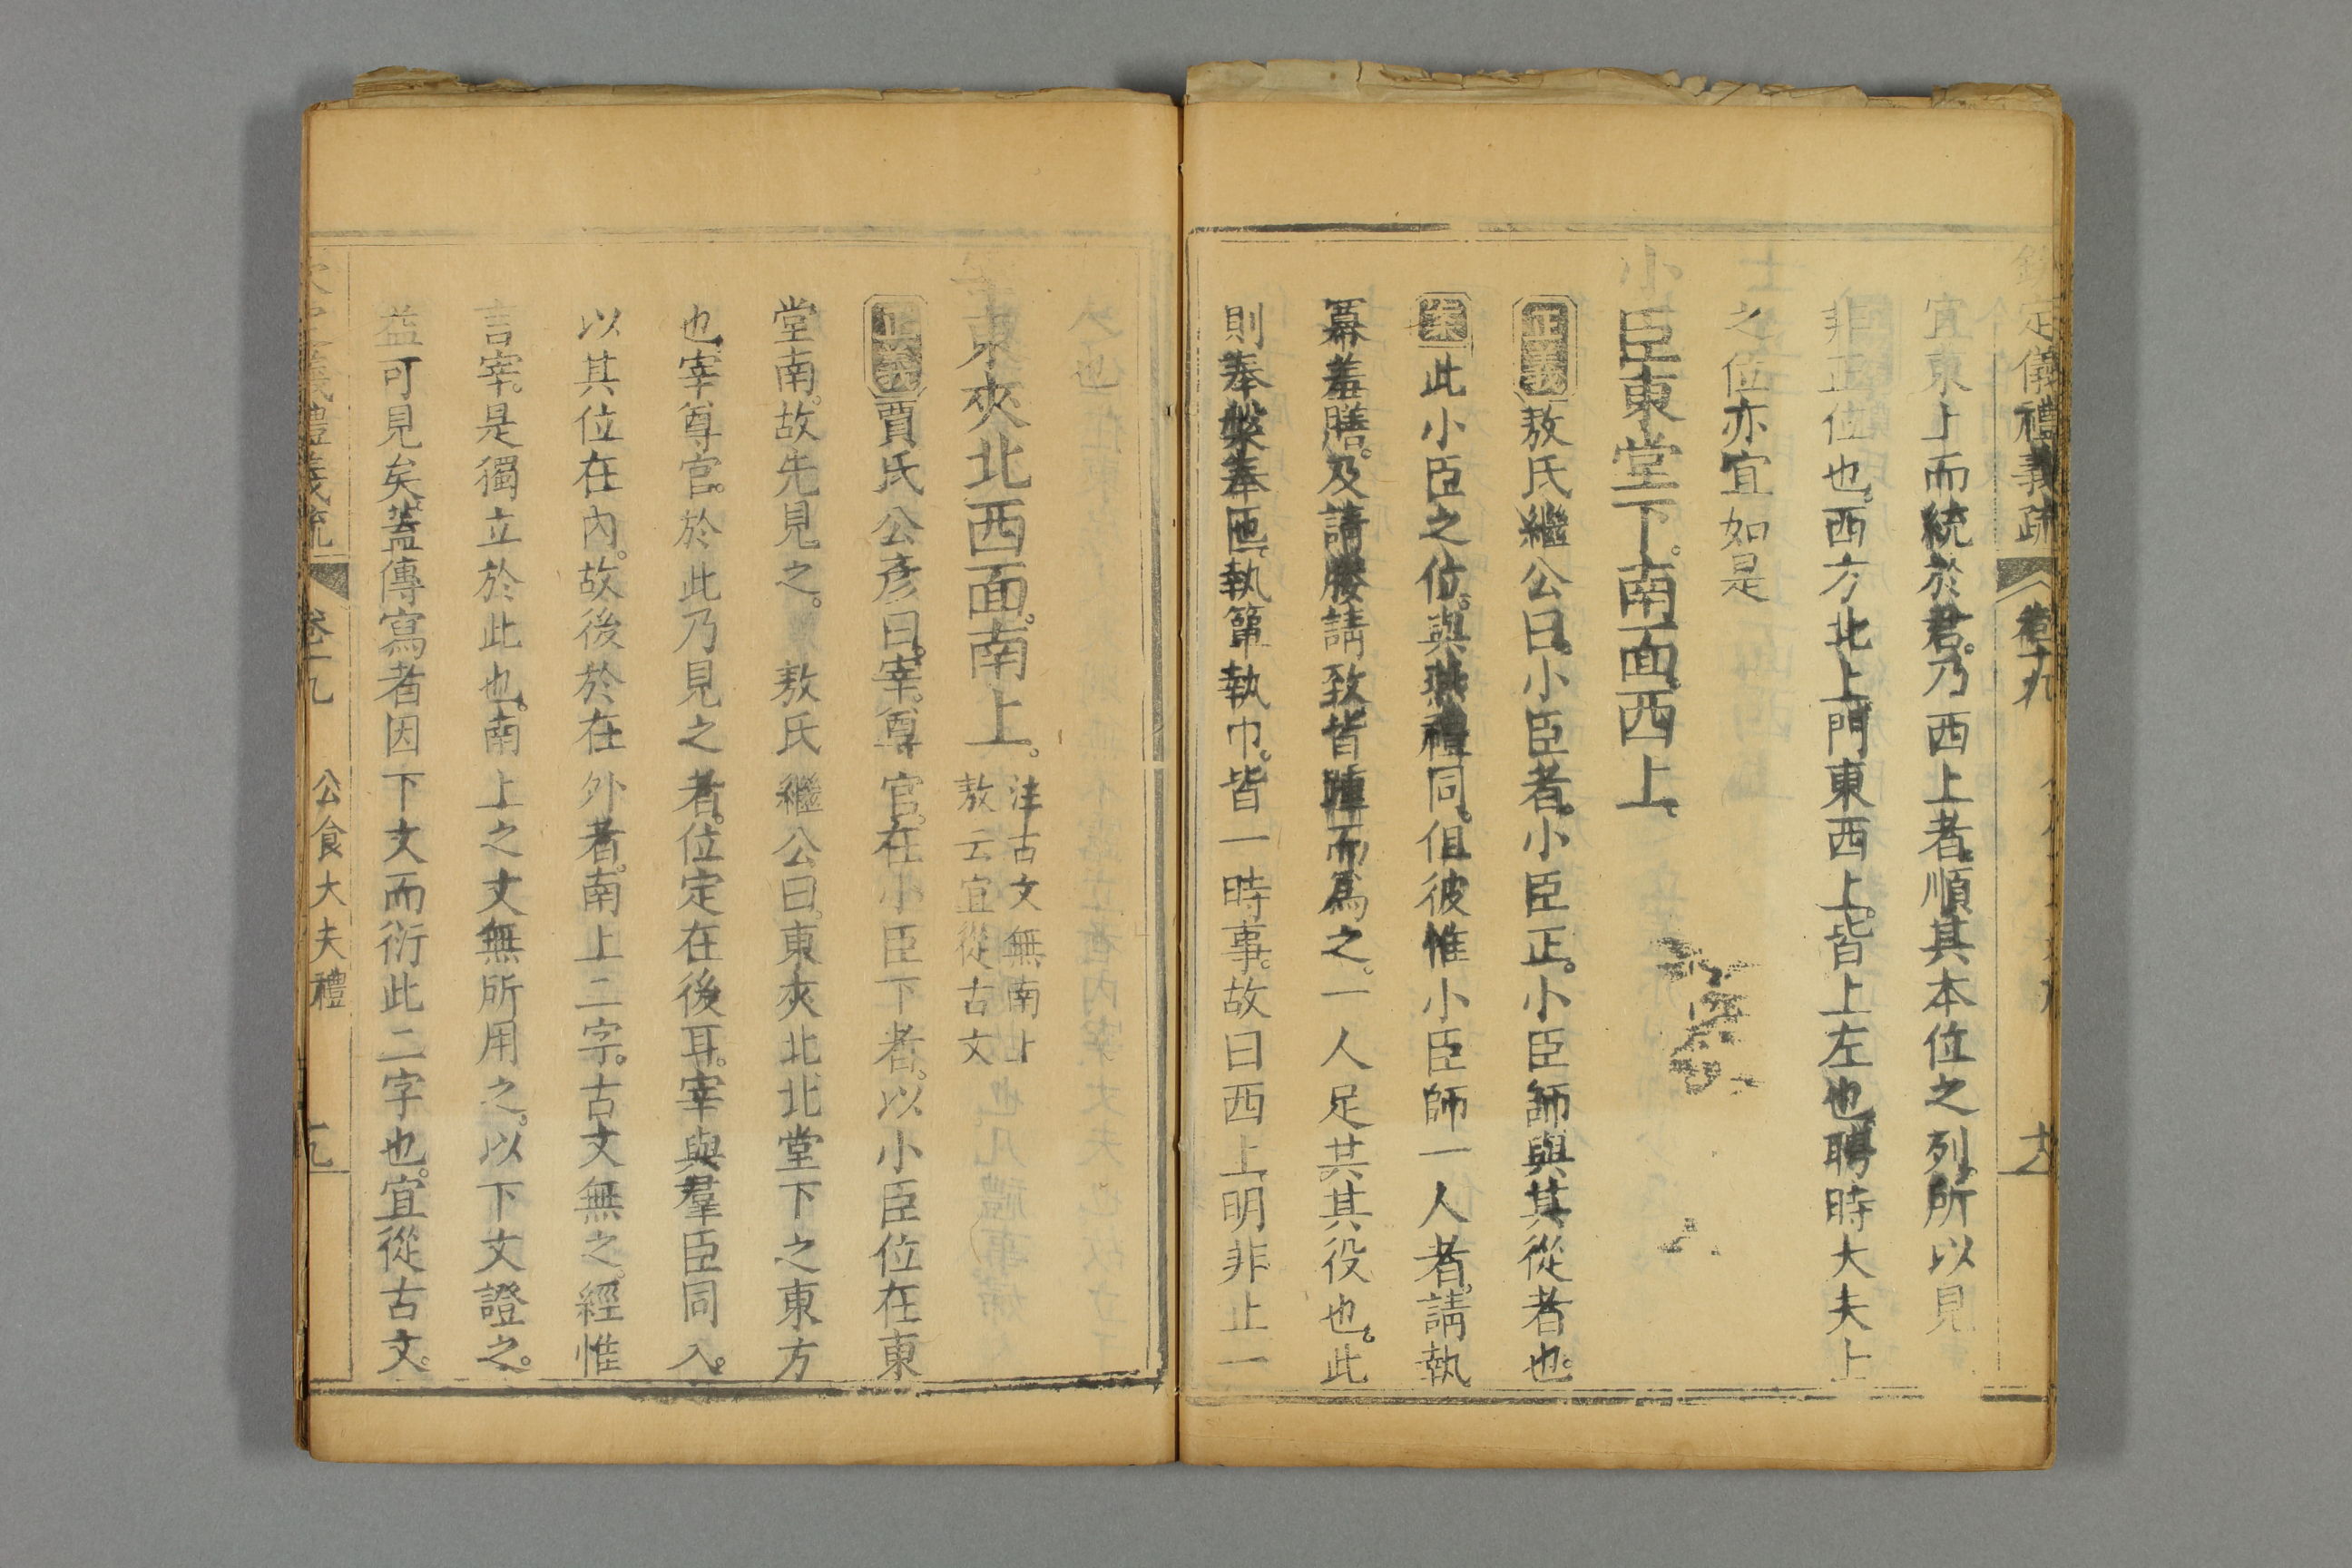 欽定儀禮義疏 卷十九
宜東上而統於君。乃西上者。順其本位之列。所以見
非正位也。西方北上門東西上。皆上左也。聘時大夫上
之位亦宜如是
小臣東堂下。南面西上。
正義敖氏繼公曰。小臣者。小臣正。小臣師與其從者也。
案此小臣之位。與燕禮同。但彼惟小臣師一人者。請執
冪羞膳。及請媵請致皆踵而爲之。一人足共其役也。此
則奉槃奉匜。執簞執巾。皆一時事。故曰西上。明非止一
宰東夾北西面。南上。注古文無南上
敖云宜從古文
正義賈氏公彥曰。宰。尊官。在小臣下者。以小臣位在東
堂南。故先見之。 敖氏繼公曰。東夾北北堂下之東方
也。宰尊官。於此乃見之者。位定在後耳。宰與羣臣同入。
以其位在內。故後於在外者。南上二字。古文無之。經惟
言宰。是獨立於此也。南上之文無所用之。以下文證之。
益可見矣。蓋傳寫者因下文而衍此二字也。宜從古文。
卷十九 公食大夫禮